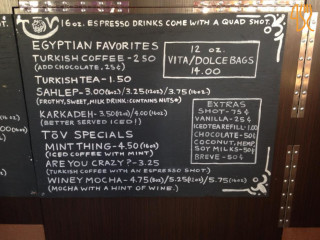 16oz. ESPRESSO DRINKS COME WITH A QUAD SHOT.
EGYPTIAN FAVORITES
TURKISH COFFEE - 2.50
(ADD CHOCOLATE, 25¢)
TURKISH TEA - 1.50
SAHLEP - 3.00(8oz)/3.25(12oz)/3.75(16oz)
(FROTHY, SWEET, MILK DRINK: CONTAINS NUTS*)
KARKADEH - 3.50(12oz)/4.00(16oz)
(BETTER SERVED ICED!)
TOV SPECIALS
MINT THING - 4.50(16oz)
(ICED COFFEE WITH MINT)
ARE YOU CRAZY? - 3.25
(TURKISH COFFEE WITH AN ESPRESSO SHOT)
WINEY MOCHA - 4.75(8oz)/5.25(12oz)/5.75(16oz)
(MOCHA WITH A HINT OF WINE.)
12 oz.
VITA/DOLCE BAGS
14.00
EXTRAS
SHOT - 75¢
VANILLA - 25¢
ICED TEA REFILL - 1.00
CHOCOLATE - 50¢
COCONUT, HEMP,
SOY MILKS - 50¢
BREVE - 50¢